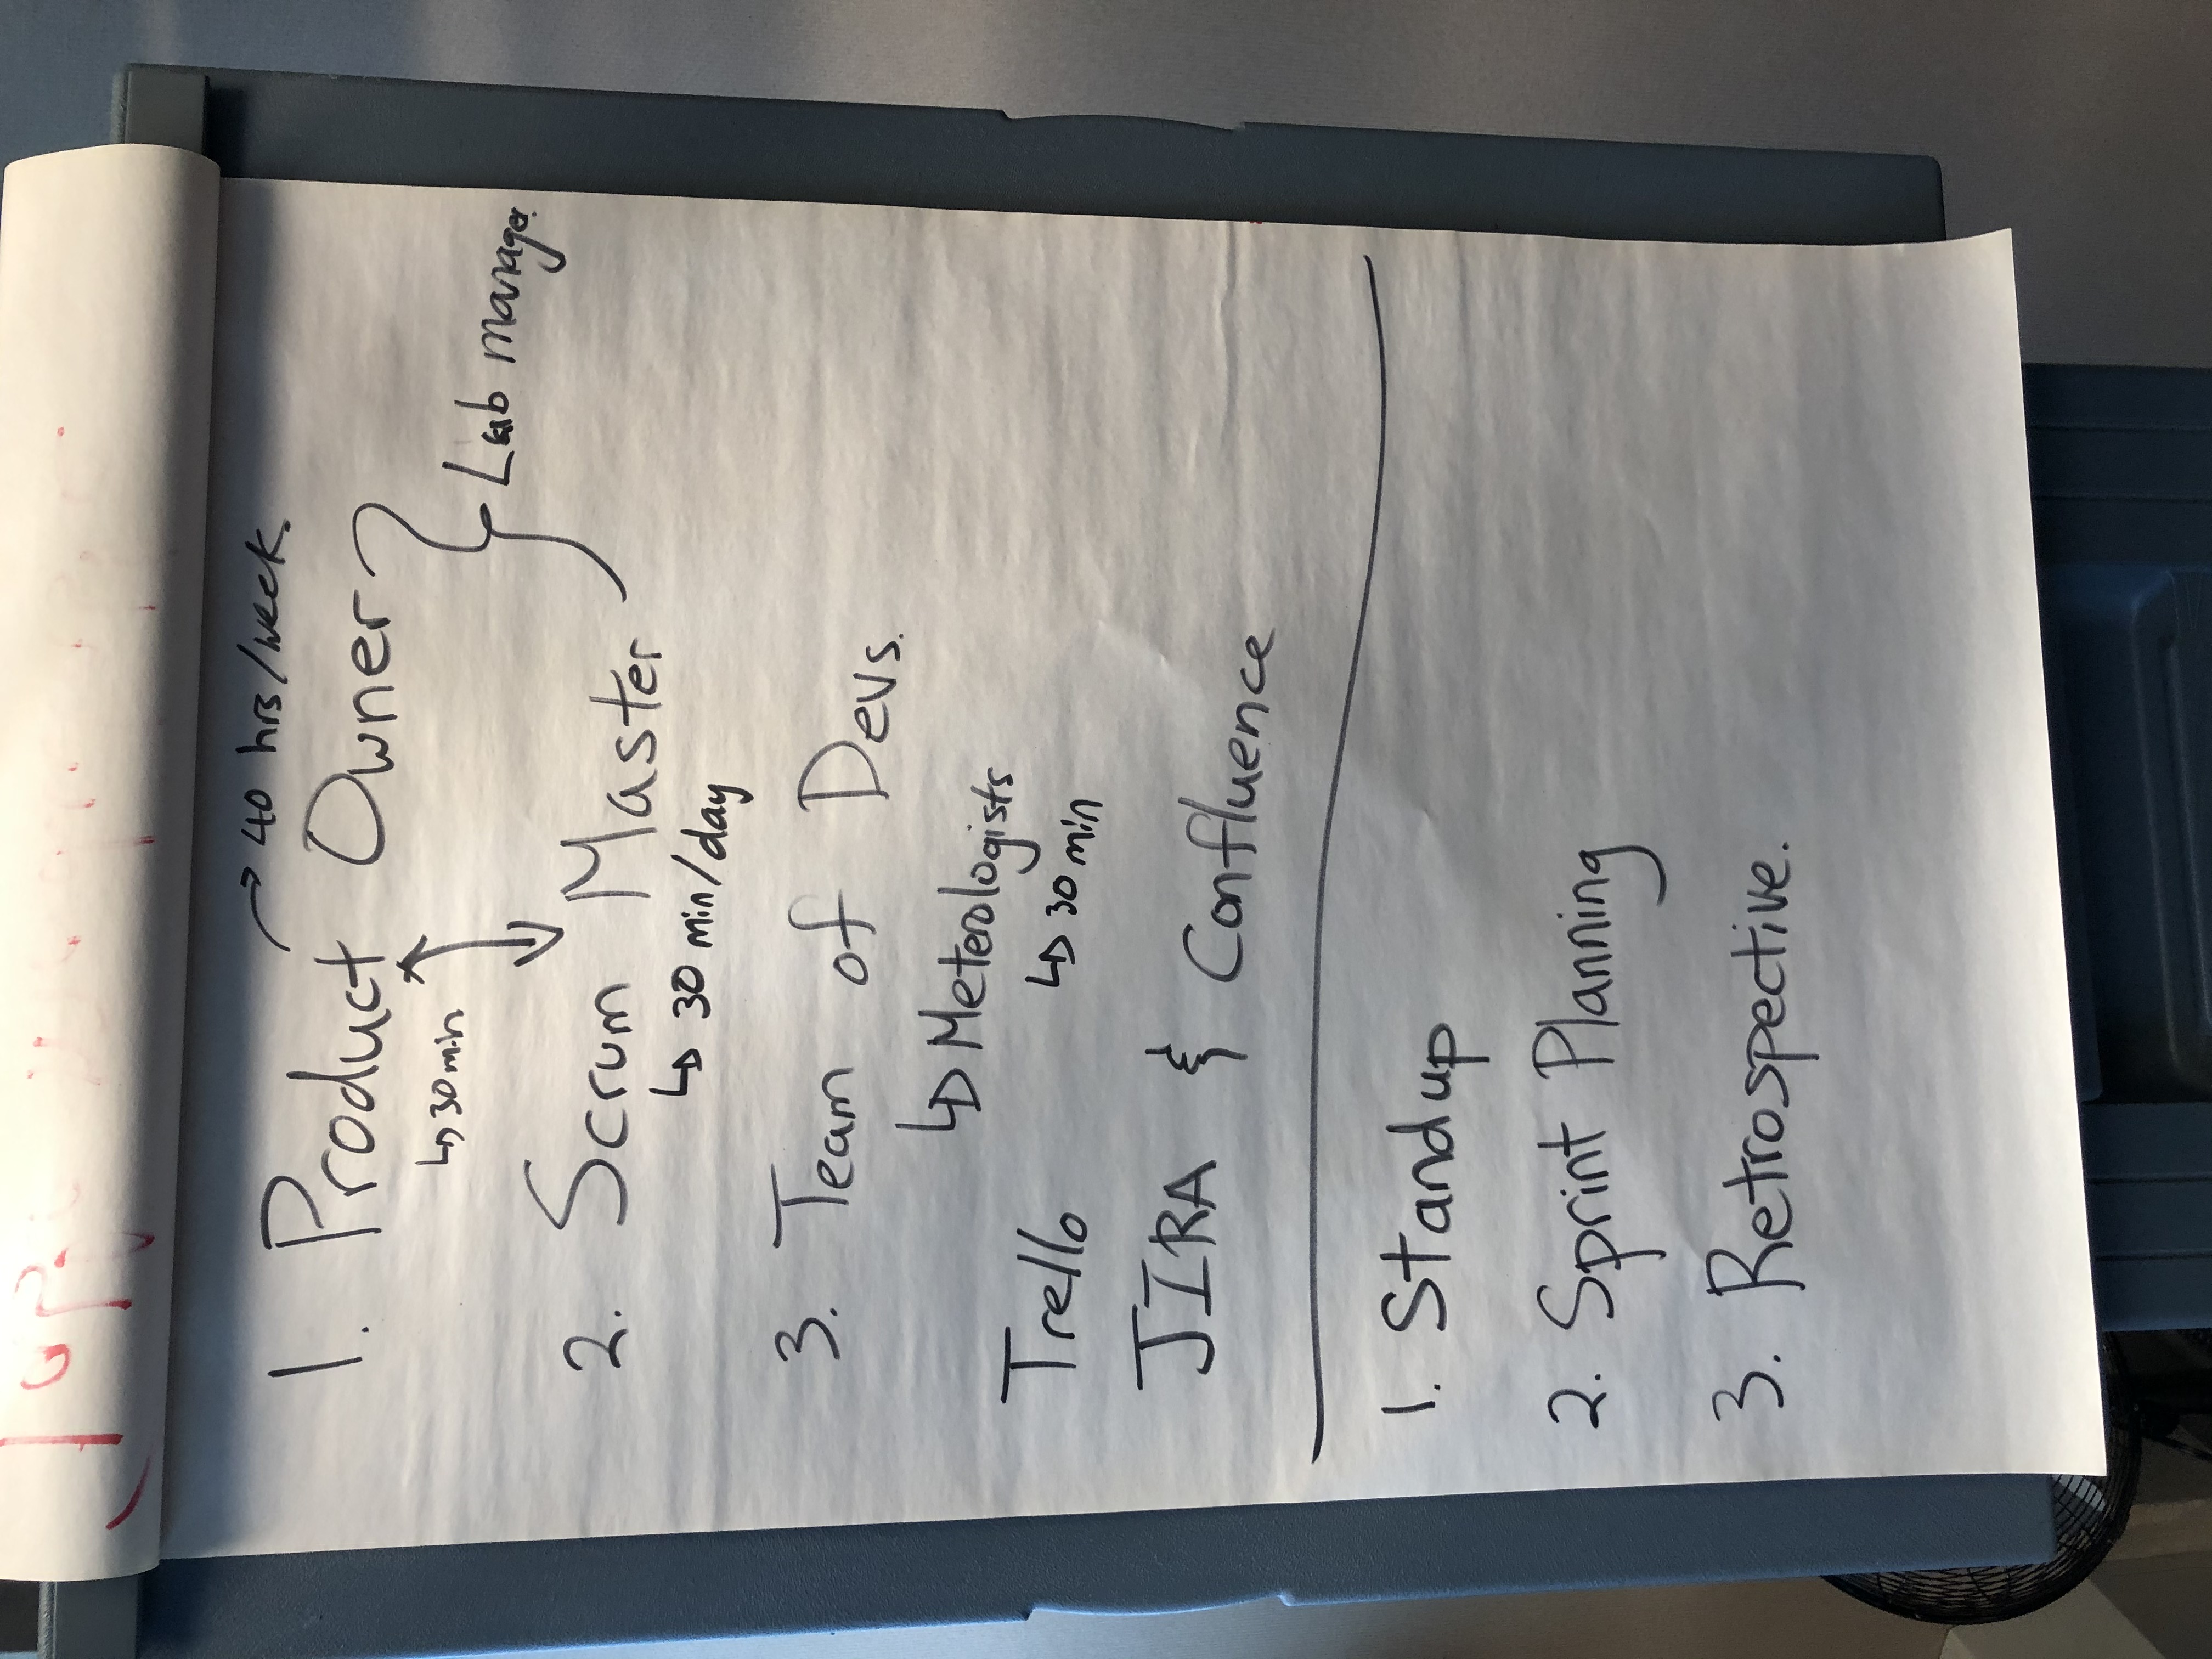 40 hrs/week.
1. Product Owner
↳ 30 min
Lab manager.
2. Scrum Master
↳ 30 min/day
3. Team of Devs.
↳ Meterologists
Trello
↳ 30 min
JIRA & Confluence
1. Standup
2. Sprint Planning
3. Retrospective.